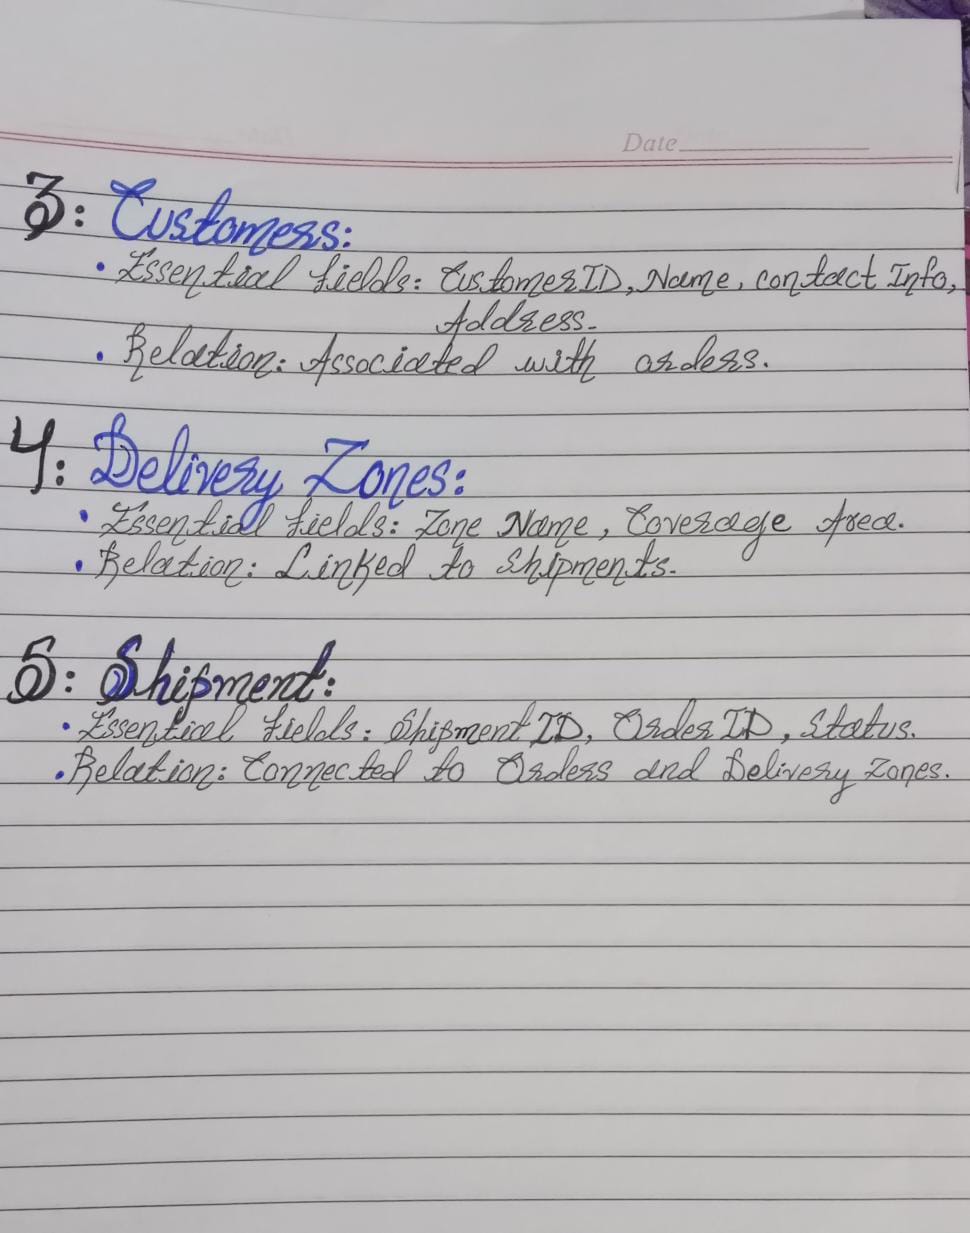 Date
3: Customers:
• Essential fields: CustomerID, Name, contact Info,
Address.
• Relation: Associated with orders.
4: Delivery Zones:
• Essential fields: Zone Name, Coverage Area.
• Relation: Linked to Shipments.
5: Shipment:
• Essential fields: Shipment ID, Order ID, Status.
• Relation: Connected to Orders and Delivery Zones.